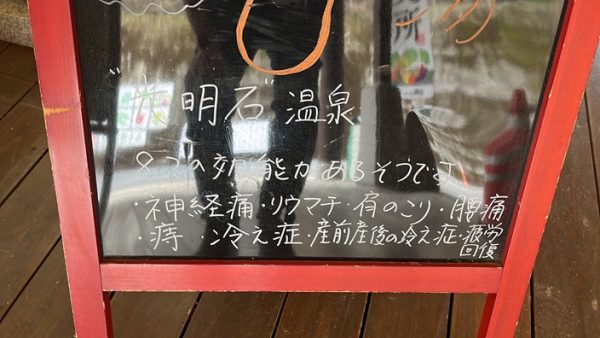 "光明石" 温泉
8つの効能があるそうです!
・神経痛・リウマチ・肩のこり・腰痛
・痔 冷え症・産前産後の冷え症・疲労
回復